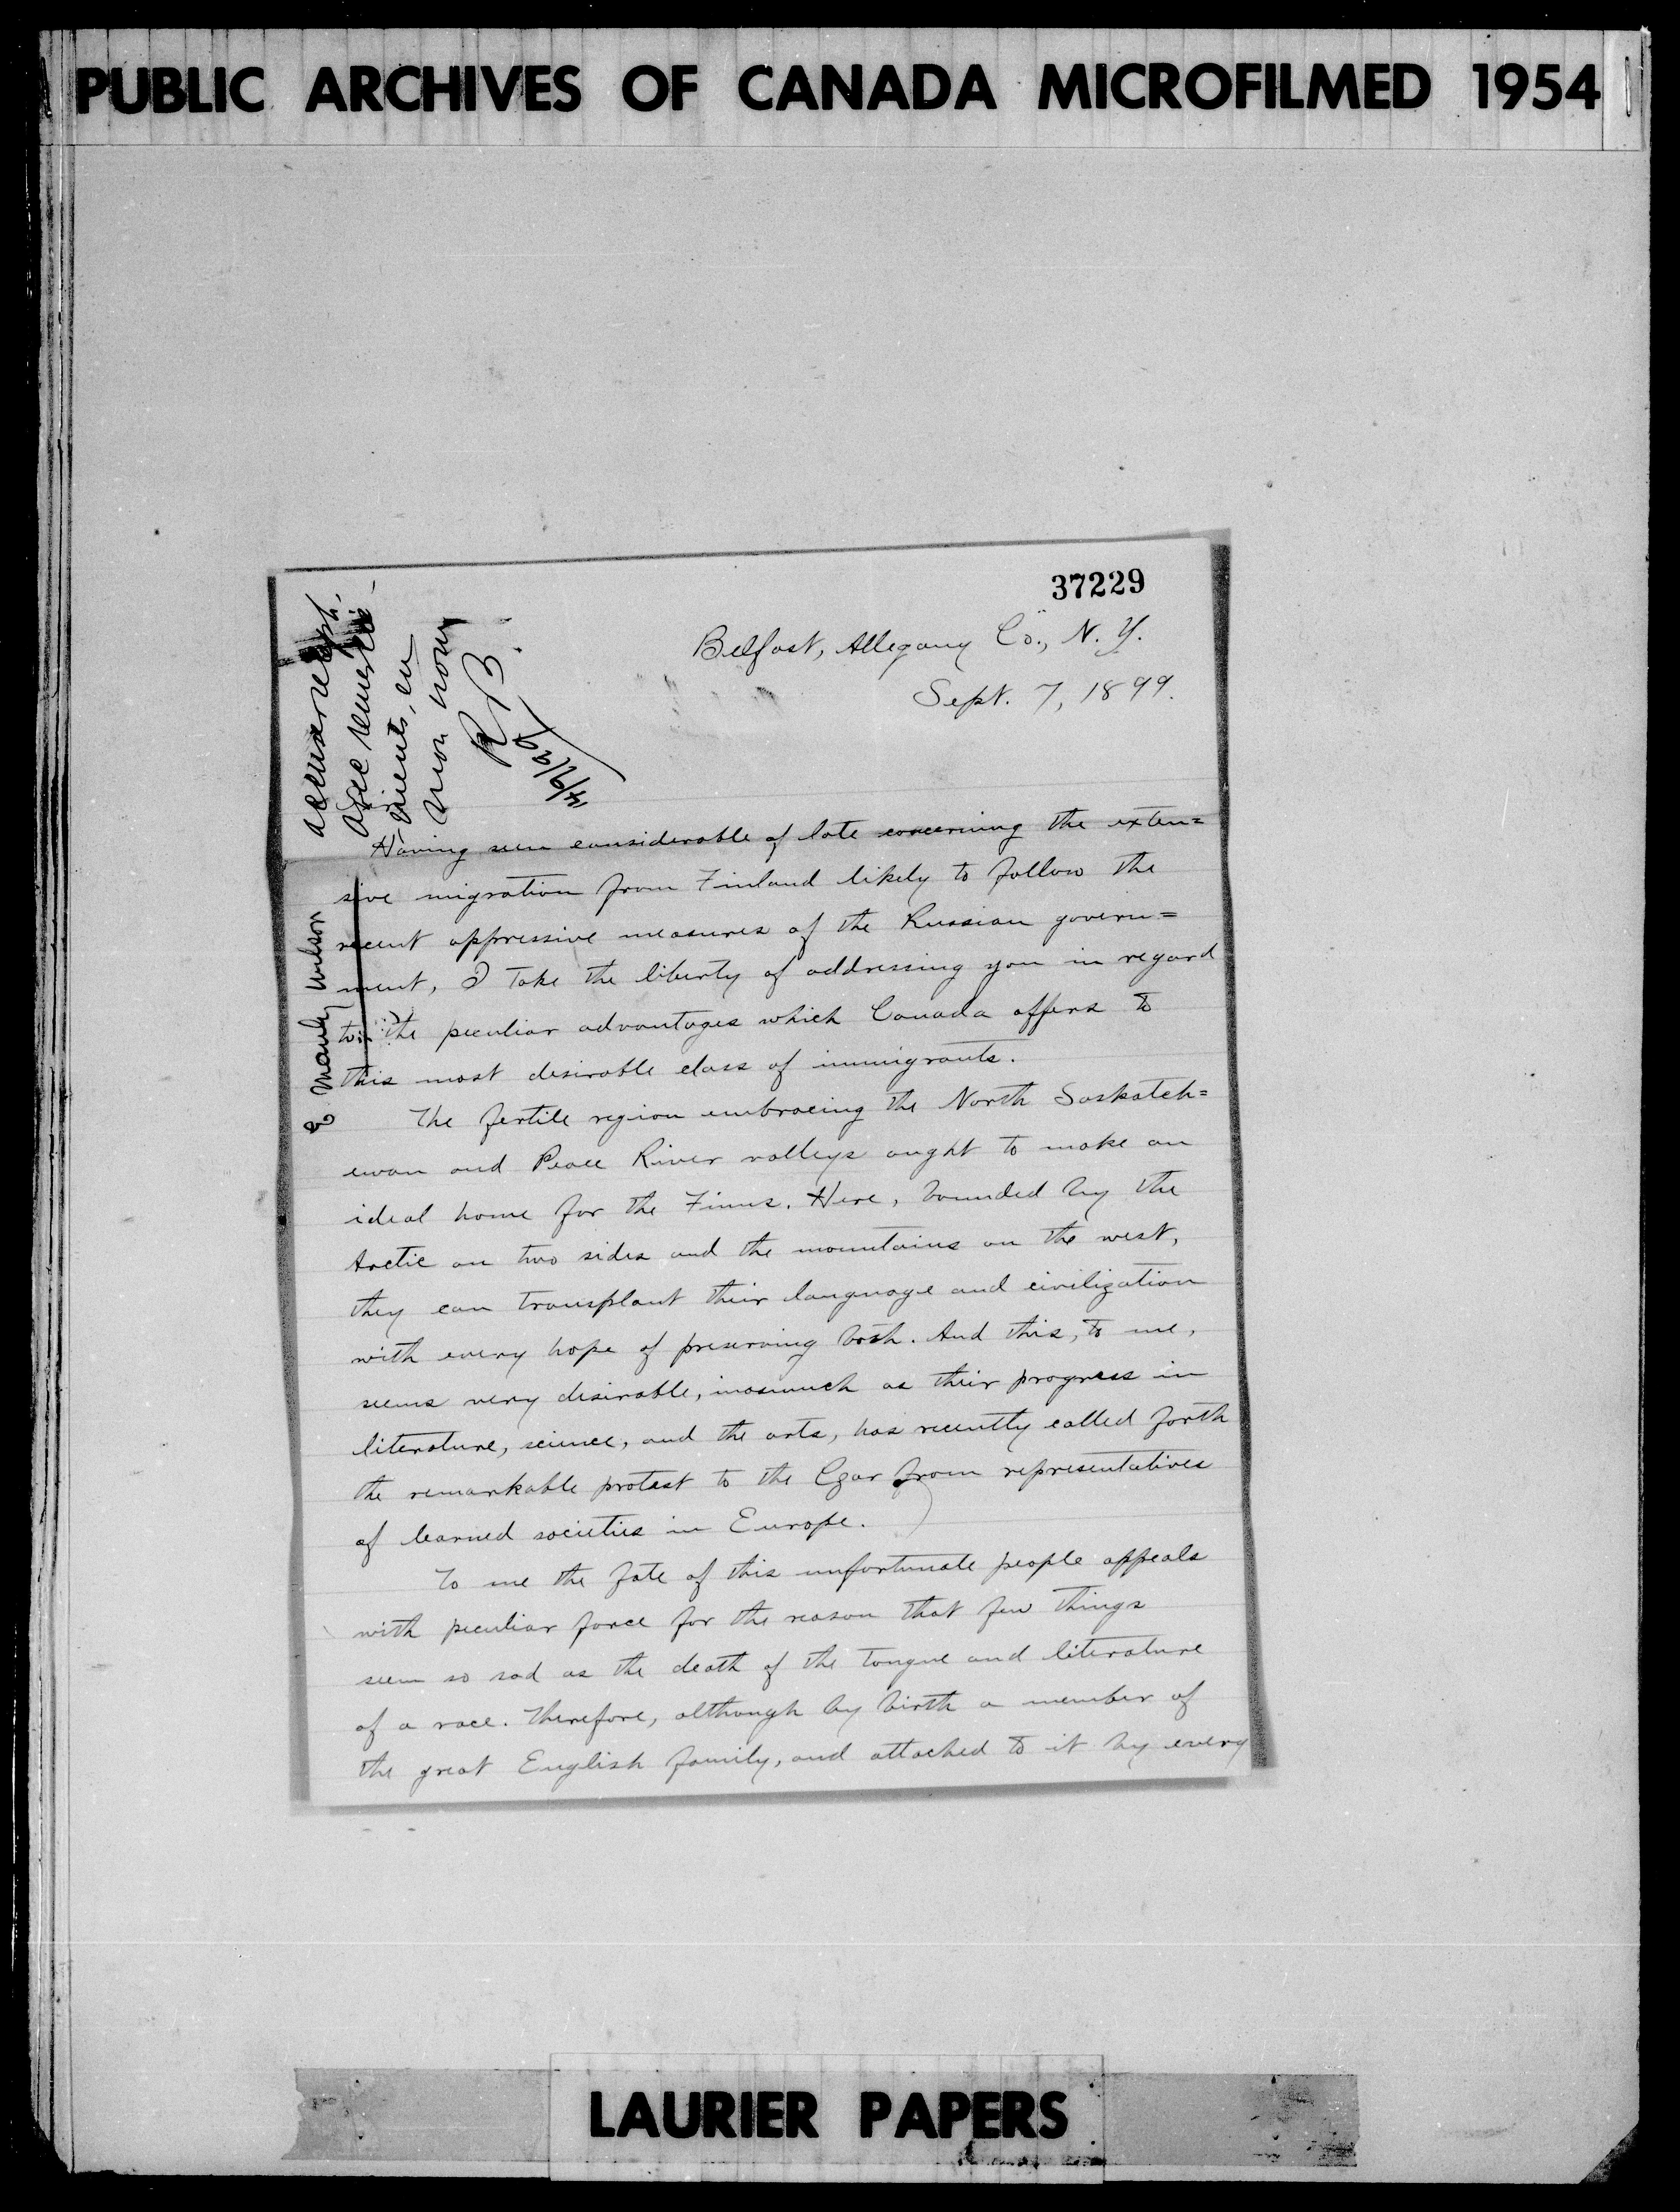 PUBLIC ARCHIVES OF CANADA MICROFILMED 1954
37229
accuser récept.
avec remercie-
ments, en
mon nom
RB.
14/9/99
E Manly Wilson
Belfast, Allegany Co., N. Y.
Sept. 7, 1899.
Having seen considerable of late concerning the exten=
sive migration from Finland likely to follow the
recent oppressive measures of the Russian govern=
ment, I take the liberty of addressing you in regard
to the peculiar advantages which Canada offers to
this most desirable class of immigrants.
The fertile region embracing the North Saskatch=
ewan and Peace River valleys ought to make an
ideal home for the Finns. Here, bounded by the
Arctic on two sides and the mountains on the west,
they can transplant their language and civilization
with every hope of preserving both. And this, to me,
seems very desirable, inasmuch as their progress in
literature, science, and the arts, has recently called forth
the remarkable protest to the Czar from representatives
of learned societies in Europe.
To me the fate of this unfortunate people appeals
with peculiar force for the reason that few things
seem so sad as the death of the tongue and literature
of a race. Therefore, although by birth a member of
the great English family, and attached to it by every
LAURIER PAPERS